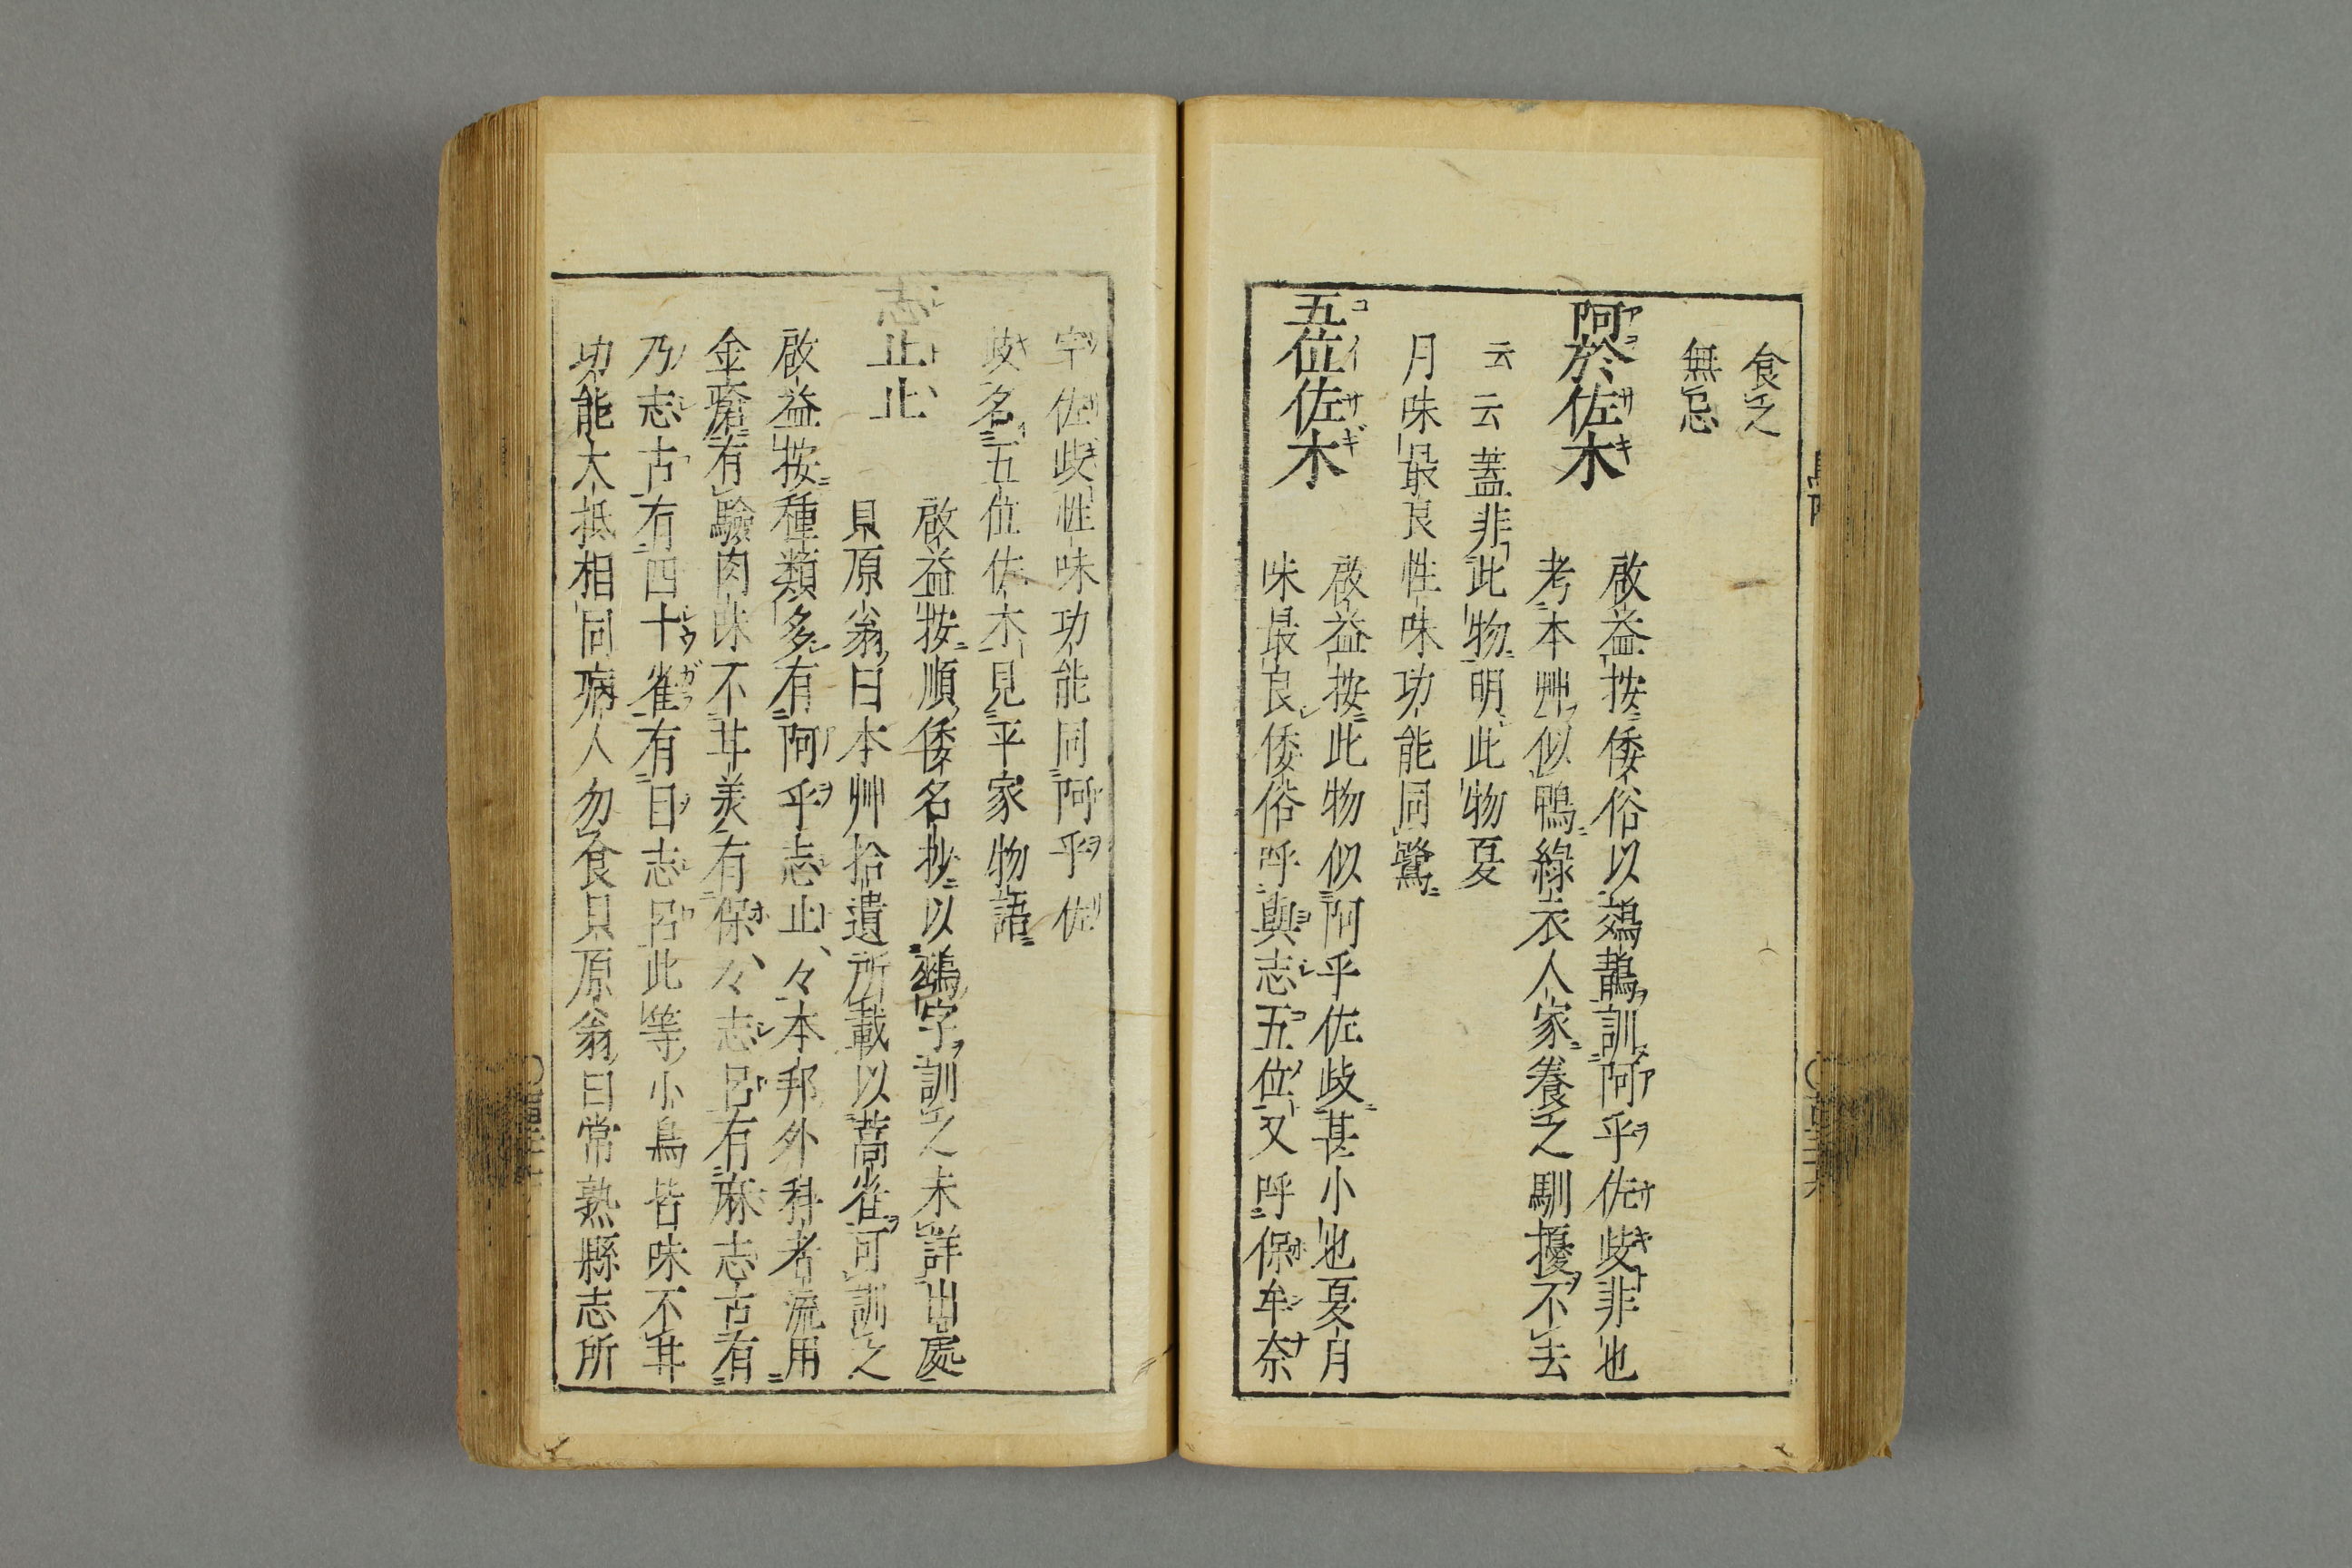 食之
無忌
阿於佐木
啟益按倭俗以鵁鶄訓阿乎佐歧非也
考本艸似鴨綠衣人家養之馴擾不去
云云蓋非此物明此物夏
月味最良性味功能同鷺
五位佐木
啟益按此物似阿乎佐歧甚小也夏月
味最良倭俗呼與志五位又呼保牟奈
宇佐歧性味功能同阿乎佐
歧名五位佐木見平家物語
志止止
啟益按順倭名抄以鵐字訓之未詳出處
貝原翁曰本艸拾遺所載以蒿雀可訓之
啟益按種類多有阿乎志止、々本邦外科者流用
金瘡有驗肉味不甘美有保、々志呂有麻志古有
乃志古有四十雀有目志呂此等小鳥皆味不甘
功能大抵相同病人勿食貝原翁曰常熟縣志所